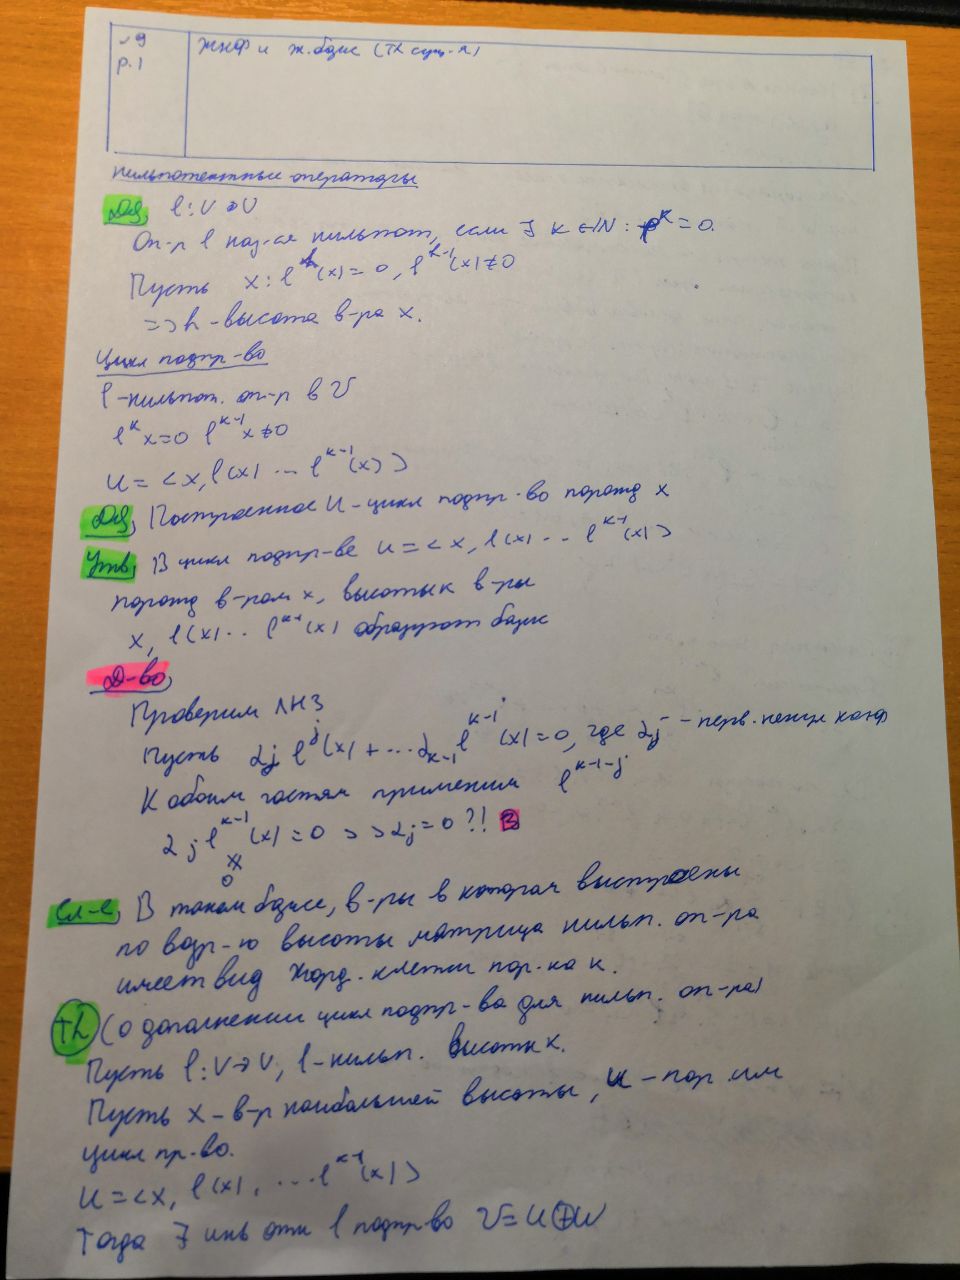 №9
р.1
ЖНФ и ж.базис (Th сущ-я)
Нильпотентные операторы
Def, φ: V → V
Оп-р φ наз-ся нильпот, если ∃ k ∈ N : φ^k = 0.
Пусть x: φ^h(x) = 0, φ^{h-1}(x) ≠ 0
=> h - высота в-ра x.
Цикл подпр-во
φ - нильпот. оп-р в V
φ^k x = 0 φ^{k-1} x ≠ 0
U = < x, φ(x) ... φ^{k-1}(x) >
Def, Построенное U - цикл подпр-во порожд x
Утв, В цикл подпр-ве U = < x, φ(x) ... φ^{k-1}(x) >
порожд в-ром x, высоты k в-ры
x, φ(x) .. φ^{k-1}(x) образуют базис
Д-во,
Проверим ЛНЗ
Пусть α_j φ^j(x) + ... α_{k-1} φ^{k-1}(x) = 0, где α_j - перв. ненул коэф
К обоим частям применим φ^{k-1-j}
α_j φ^{k-1}(x) = 0 => α_j = 0 ?!
≠
0
Сл-е, В таком базисе, в-ры в котором выстроены
по возр-ю высоты матрица нильп. оп-ра
имеет вид Жорд. клетки пор-ка k.
Th (о дополнении цикл подпр-ва для нильп. оп-ра)
Пусть φ: V → V, φ - нильп. высоты k.
Пусть x - в-р наибольшей высоты, U - пор. им
цикл пр-во.
U = < x, φ(x), ... φ^{k-1}(x) >
Тогда ∃ инв отн φ подпр-во V = U ⊕ W